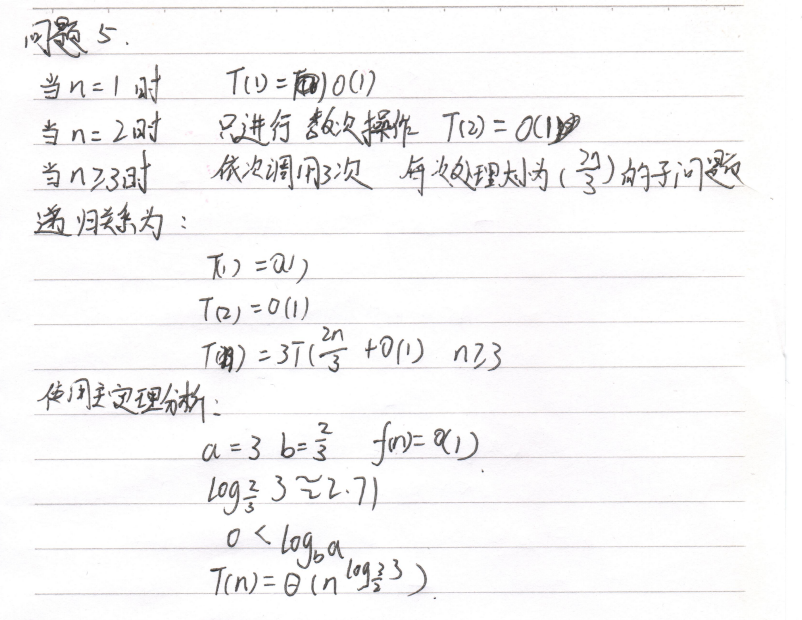 问题 5.
当 n = 1 时 T(1) = O(1)
当 n = 2 时 只进行 数次操作 T(2) = O(1)
当 n ≥ 3 时 依次调用3次 每次处理大小为 (2n/3) 的子问题
递归关系为：
T(1) = O(1)
T(2) = O(1)
T(n) = 3T(2n/3 + O(1) n ≥ 3
使用主定理分析：
a = 3 b = 2/3 f(n) = O(1)
log_{2/3} 3 ≈ 2.71
0 < log_b a
T(n) = θ(n^{log_{3/2} 3})